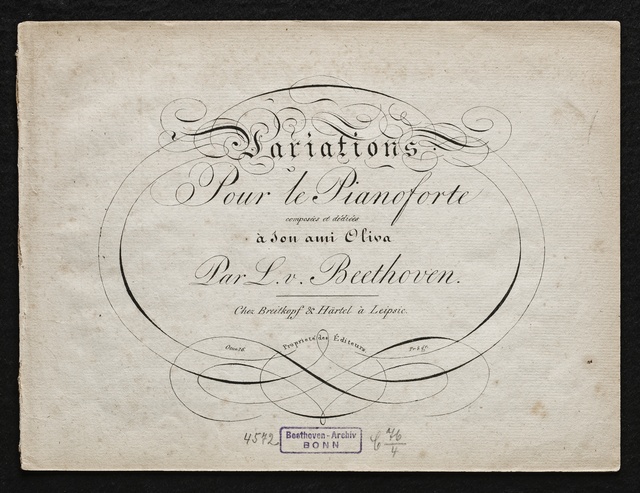 Variations
Pour le Pianoforte
composées et dediées
à Son ami Oliva
Par L. v. Beethoven.
Chez Breitkopf & Härtel à Leipsic.
Propriété des Éditeurs.
Oeuv. 76.
4572
Beethoven-Archiv
BONN
76
4